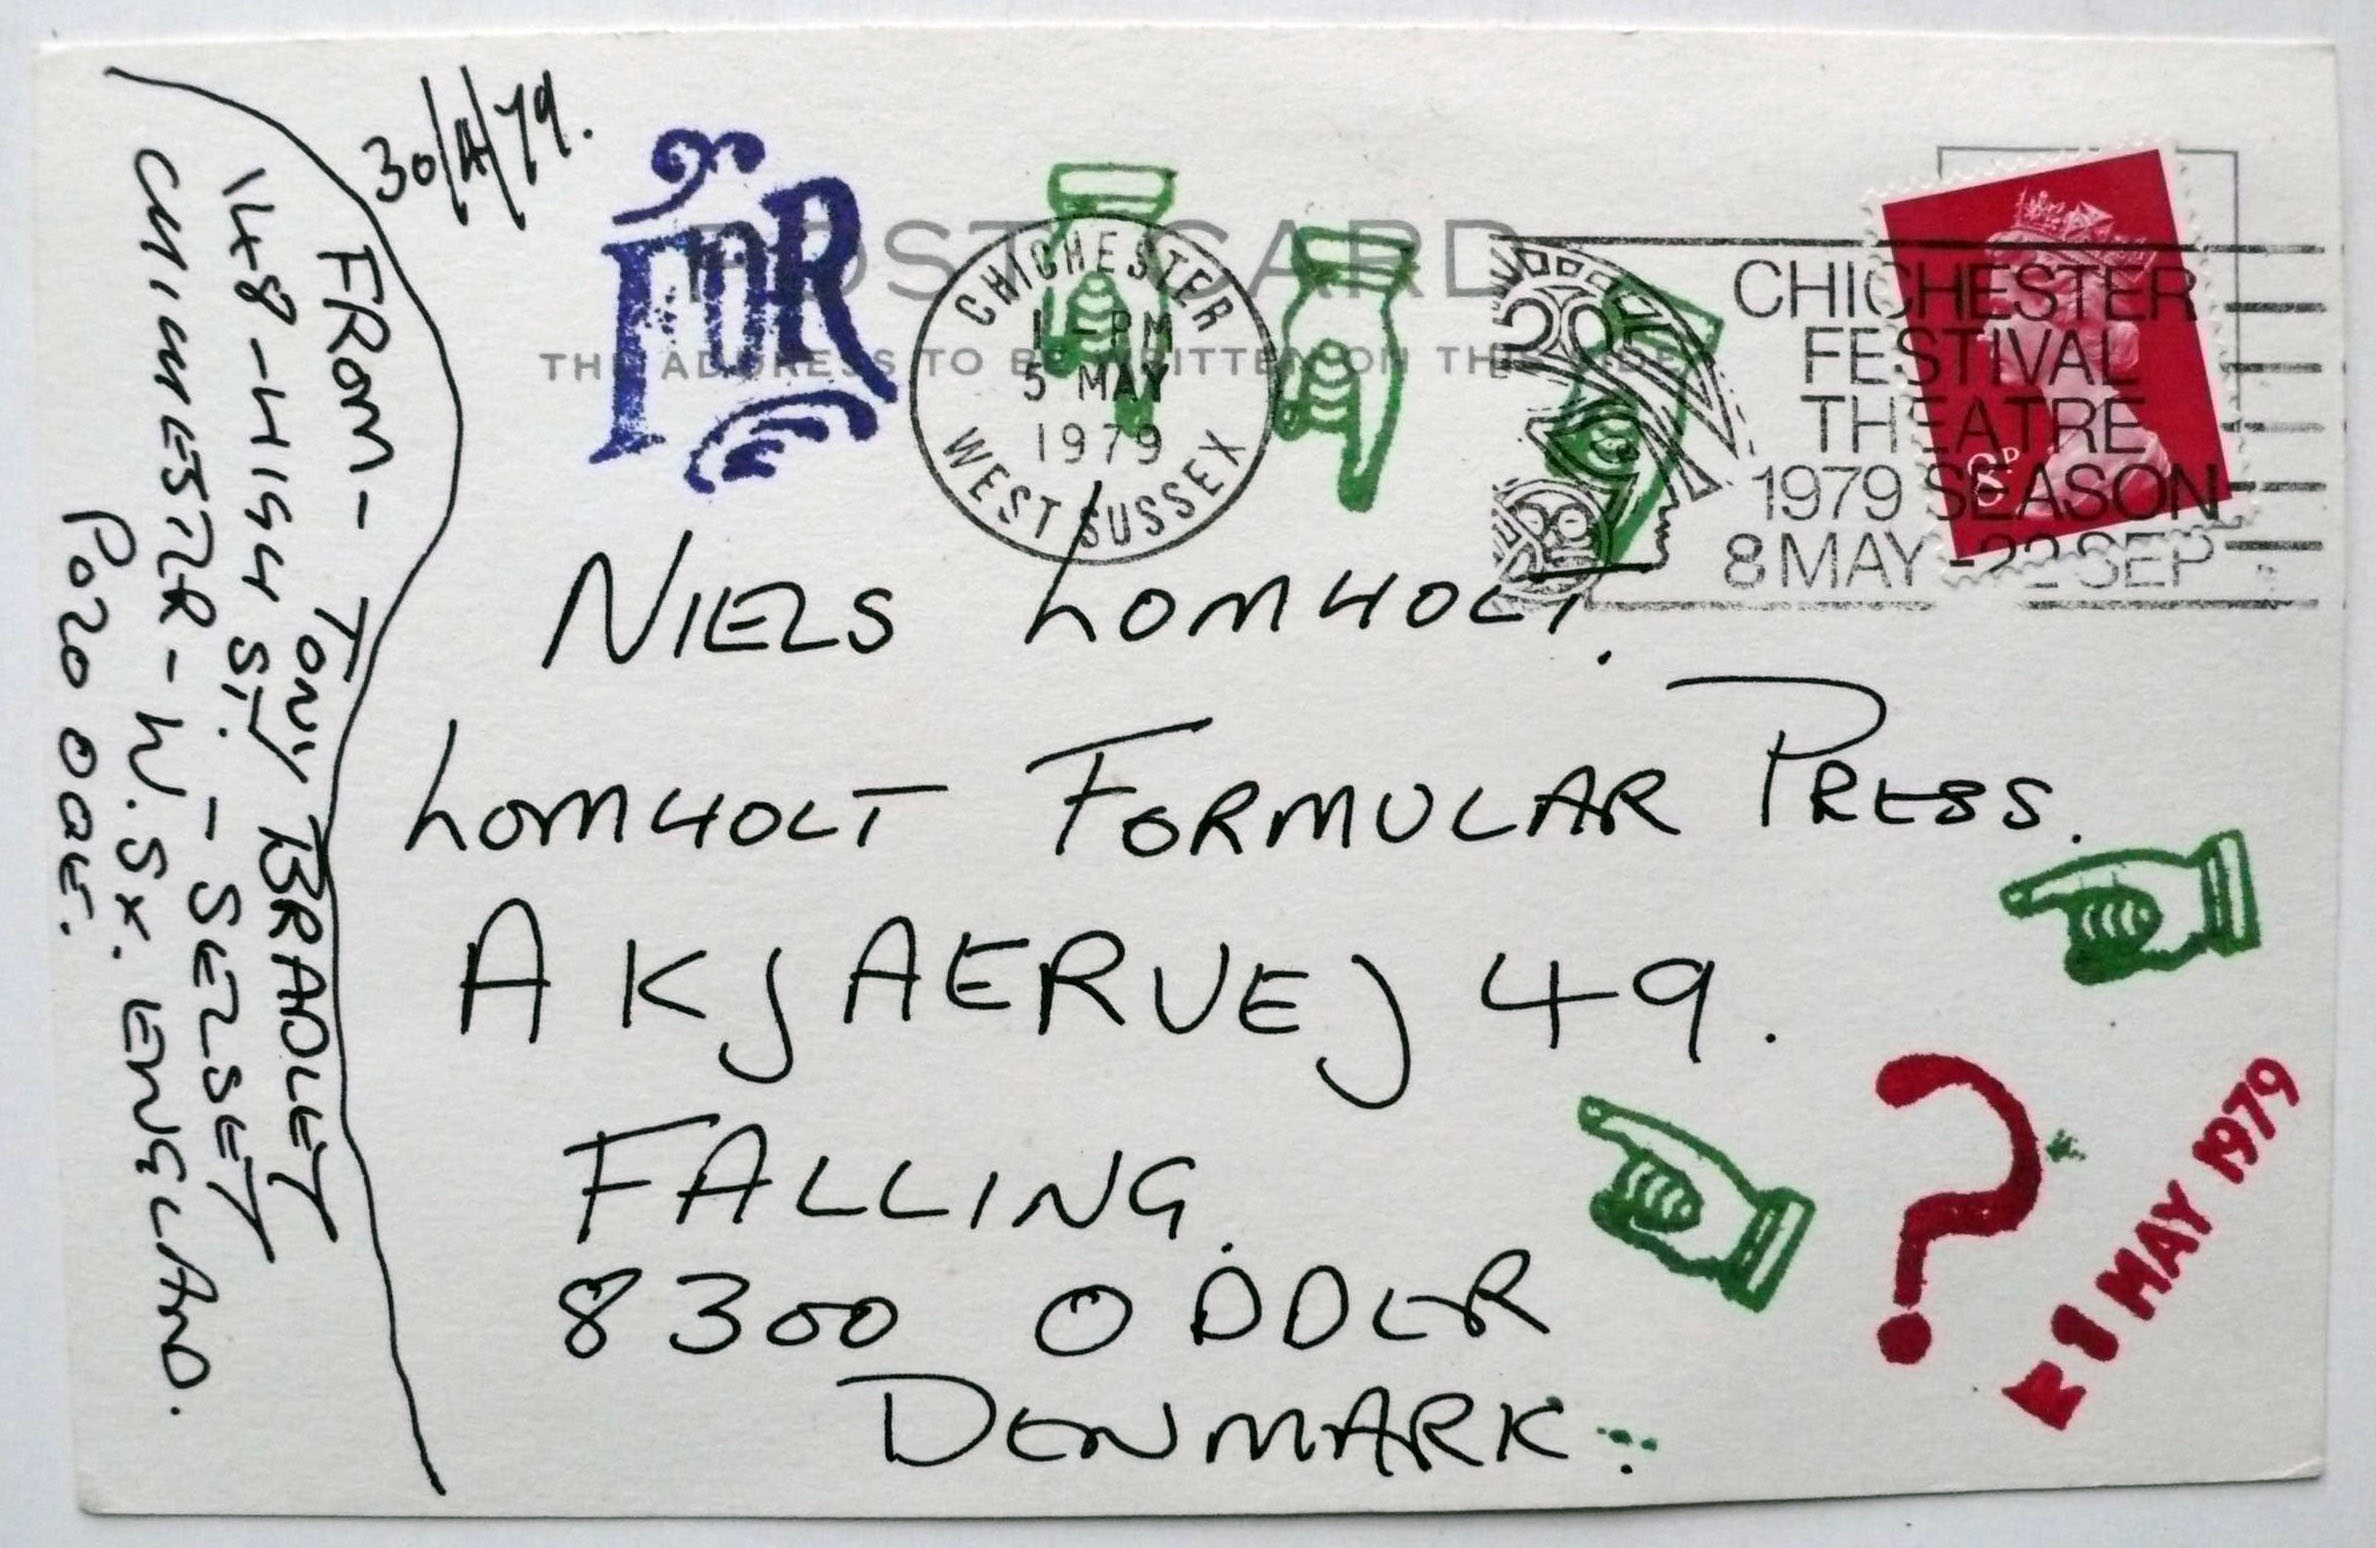 30/4/79.
FOR
POST CARD
THE ADDRESS TO BE WRITTEN ON THIS SIDE
CHICHESTER
1 - PM
5 MAY
1979
WEST SUSSEX
CHICHESTER
FESTIVAL
THEATRE
1979 SEASON
8 MAY - 22 SEP
8P
NIELS LOMHOLT.
LOMHOLT FORMULAR PRESS.
AKJAERVEJ 49.
FALLING.
8300 ODDER
DENMARK.
?
1 MAY 1979
FROM - TONY BRADLEY
148 - HIGH ST. - SELSEY
CHICHESTER - W. SX. ENGLAND.
PO20 0QE.